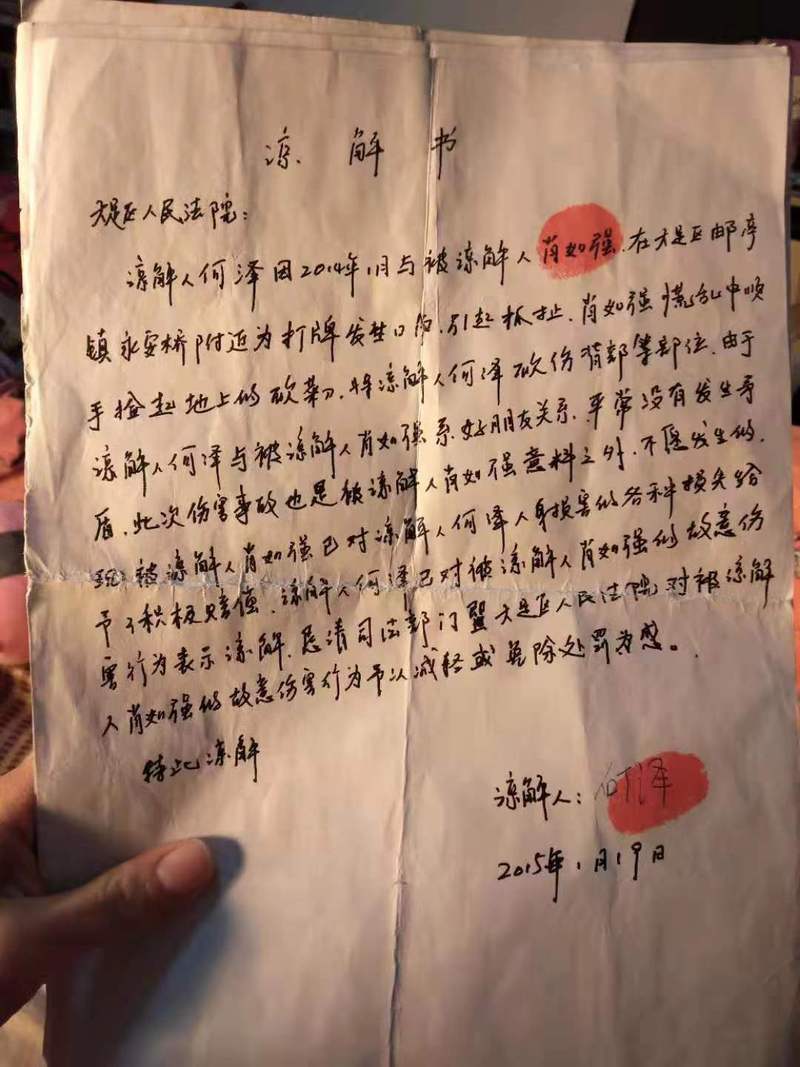 谅解书
大足区人民法院：
谅解人何泽因2014年1月与被谅解人肖如强，在大足区邮亭
镇永安桥附近为打牌发生口角，引起抓扯，肖如强慌乱中顺
手捡起地上的砍菜刀，将谅解人何泽砍伤背部等部位，由于
谅解人何泽与被谅解人肖如强系好朋友关系，平常没有发生矛
盾，此次伤害事故也是被谅解人肖如强意料之外，不愿发生的，
现被谅解人肖如强已对谅解人何泽人身损害的各种损失给
予了积极赔偿，谅解人何泽已对被谅解人肖如强的故意伤
害行为表示谅解，恳请司法部门暨大足区人民法院对被谅解
人肖如强的故意伤害行为予以减轻或免除处罚为感。
特此谅解
谅解人：何泽
2015年1月19日